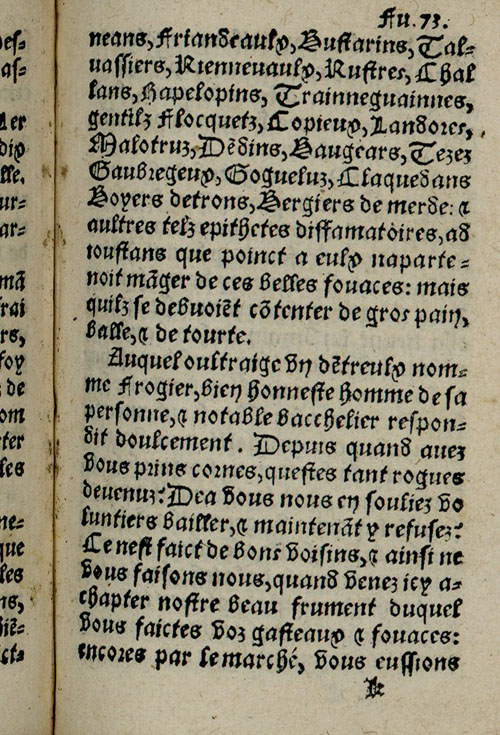 Fu. 73.
neans, Friandeaulx, Bustarins, Tal-
uassiers, Riennevaulx, Rustres, Chal
lans, Hapelopins, Trainneguainnes,
gentilz Flocquetz, Copieux, Landores,
Malotruz, Dēdins, Baugears, Tezez
Gaubregeux, Gogueluz, Claquedans
Boyers detrons, Bergiers de merde: &
aultres telz epithetes diffamatoires, ad
ioustans que poinct a eulx naparte-
noit māger de ces belles fouaces: mais
quilz se debuoiēt cōtenter de gros pain,
balle, & de tourte.
Auquel oultraige vn dētreulx nom-
me Frogier, bien honneste homme de sa
personne, & notable bacchelier respon-
dit doulcement. Depuis quand auez
vous prins cornes, questes tant rogues
deuenuz? Dea vous nous en souliez vo
luntiers bailler, & maintenāt y refusez?
Ce nest faict de bons voisins, & ainsi ne
vous faisons nous, quand venez icy a-
chapter nostre beau frument duquel
vous faictes voz gasteaux & fouaces:
encores par le marché, vous eussions
k